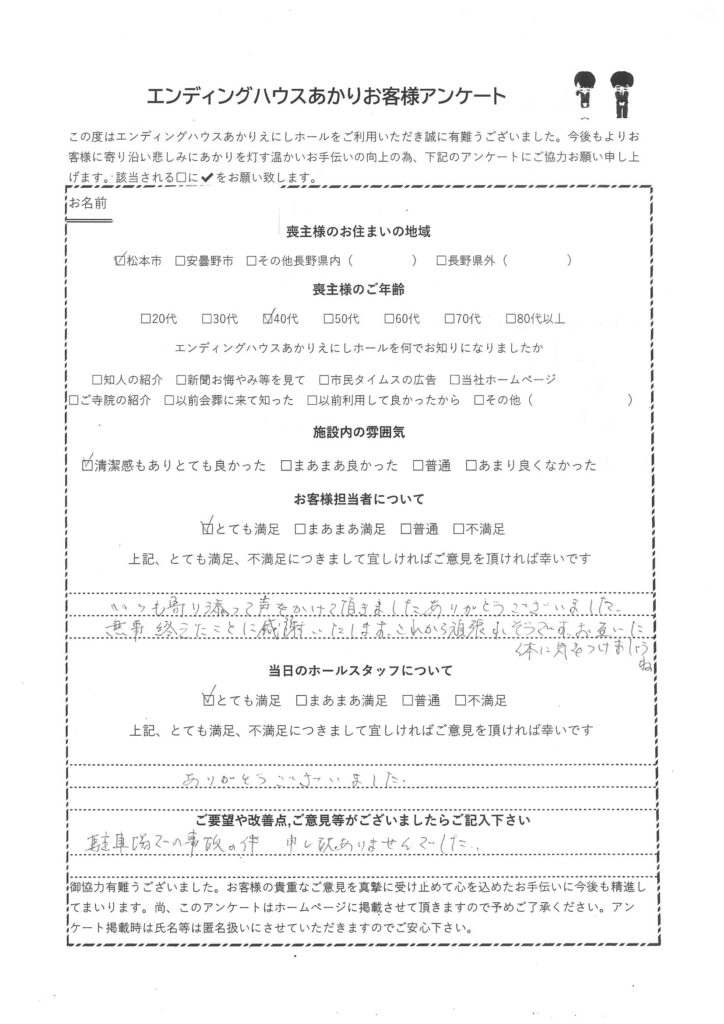 エンディングハウスあかりお客様アンケート
この度はエンディングハウスあかりえにしホールをご利用いただき誠に有難うございました。今後もよりお
客様に寄り沿い悲しみにあかりを灯す温かいお手伝いの向上の為、下記のアンケートにご協力お願い申し上
げます。該当される□に✔をお願い致します。
お名前
喪主様のお住まいの地域
☑松本市 □安曇野市 □その他長野県内（ ） □長野県外（ ）
喪主様のご年齢
□20代 □30代 ☑40代 □50代 □60代 □70代 □80代以上
エンディングハウスあかりえにしホールを何でお知りになりましたか
□知人の紹介 □新聞お悔やみ等を見て □市民タイムスの広告 □当社ホームページ
□ご寺院の紹介 □以前会葬に来て知った □以前利用して良かったから □その他（ ）
施設内の雰囲気
☑清潔感もありとても良かった □まあまあ良かった □普通 □あまり良くなかった
お客様担当者について
☑とても満足 □まあまあ満足 □普通 □不満足
上記、とても満足、不満足につきまして宜しければご意見を頂ければ幸いです
いつも寄り添って声をかけて頂きました。ありがとうございました。
無事 終えたことに感謝いたします。これから頑張れそうです。お互いに
体に気をつけましょう
ね
当日のホールスタッフについて
☑とても満足 □まあまあ満足 □普通 □不満足
上記、とても満足、不満足につきまして宜しければご意見を頂ければ幸いです
ありがとうございました。
ご要望や改善点,ご意見等がございましたらご記入下さい
駐車場での事故の件 申し訳ありませんでした。
御協力有難うございました。お客様の貴重なご意見を真摯に受け止めて心を込めたお手伝いに今後も精進し
てまいります。尚、このアンケートはホームページに掲載させて頂きますので予めご了承ください。アン
ケート掲載時は氏名等は匿名扱いにさせていただきますのでご安心下さい。